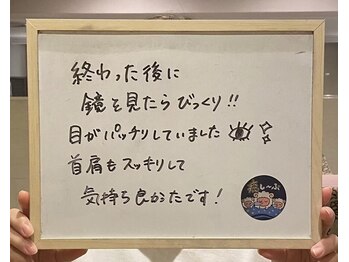 終わった後に
鏡を見たらびっくり!!
目がパッチリしていました
首肩もスッキリして
気持ち良かったです!
癒し〜ぷ